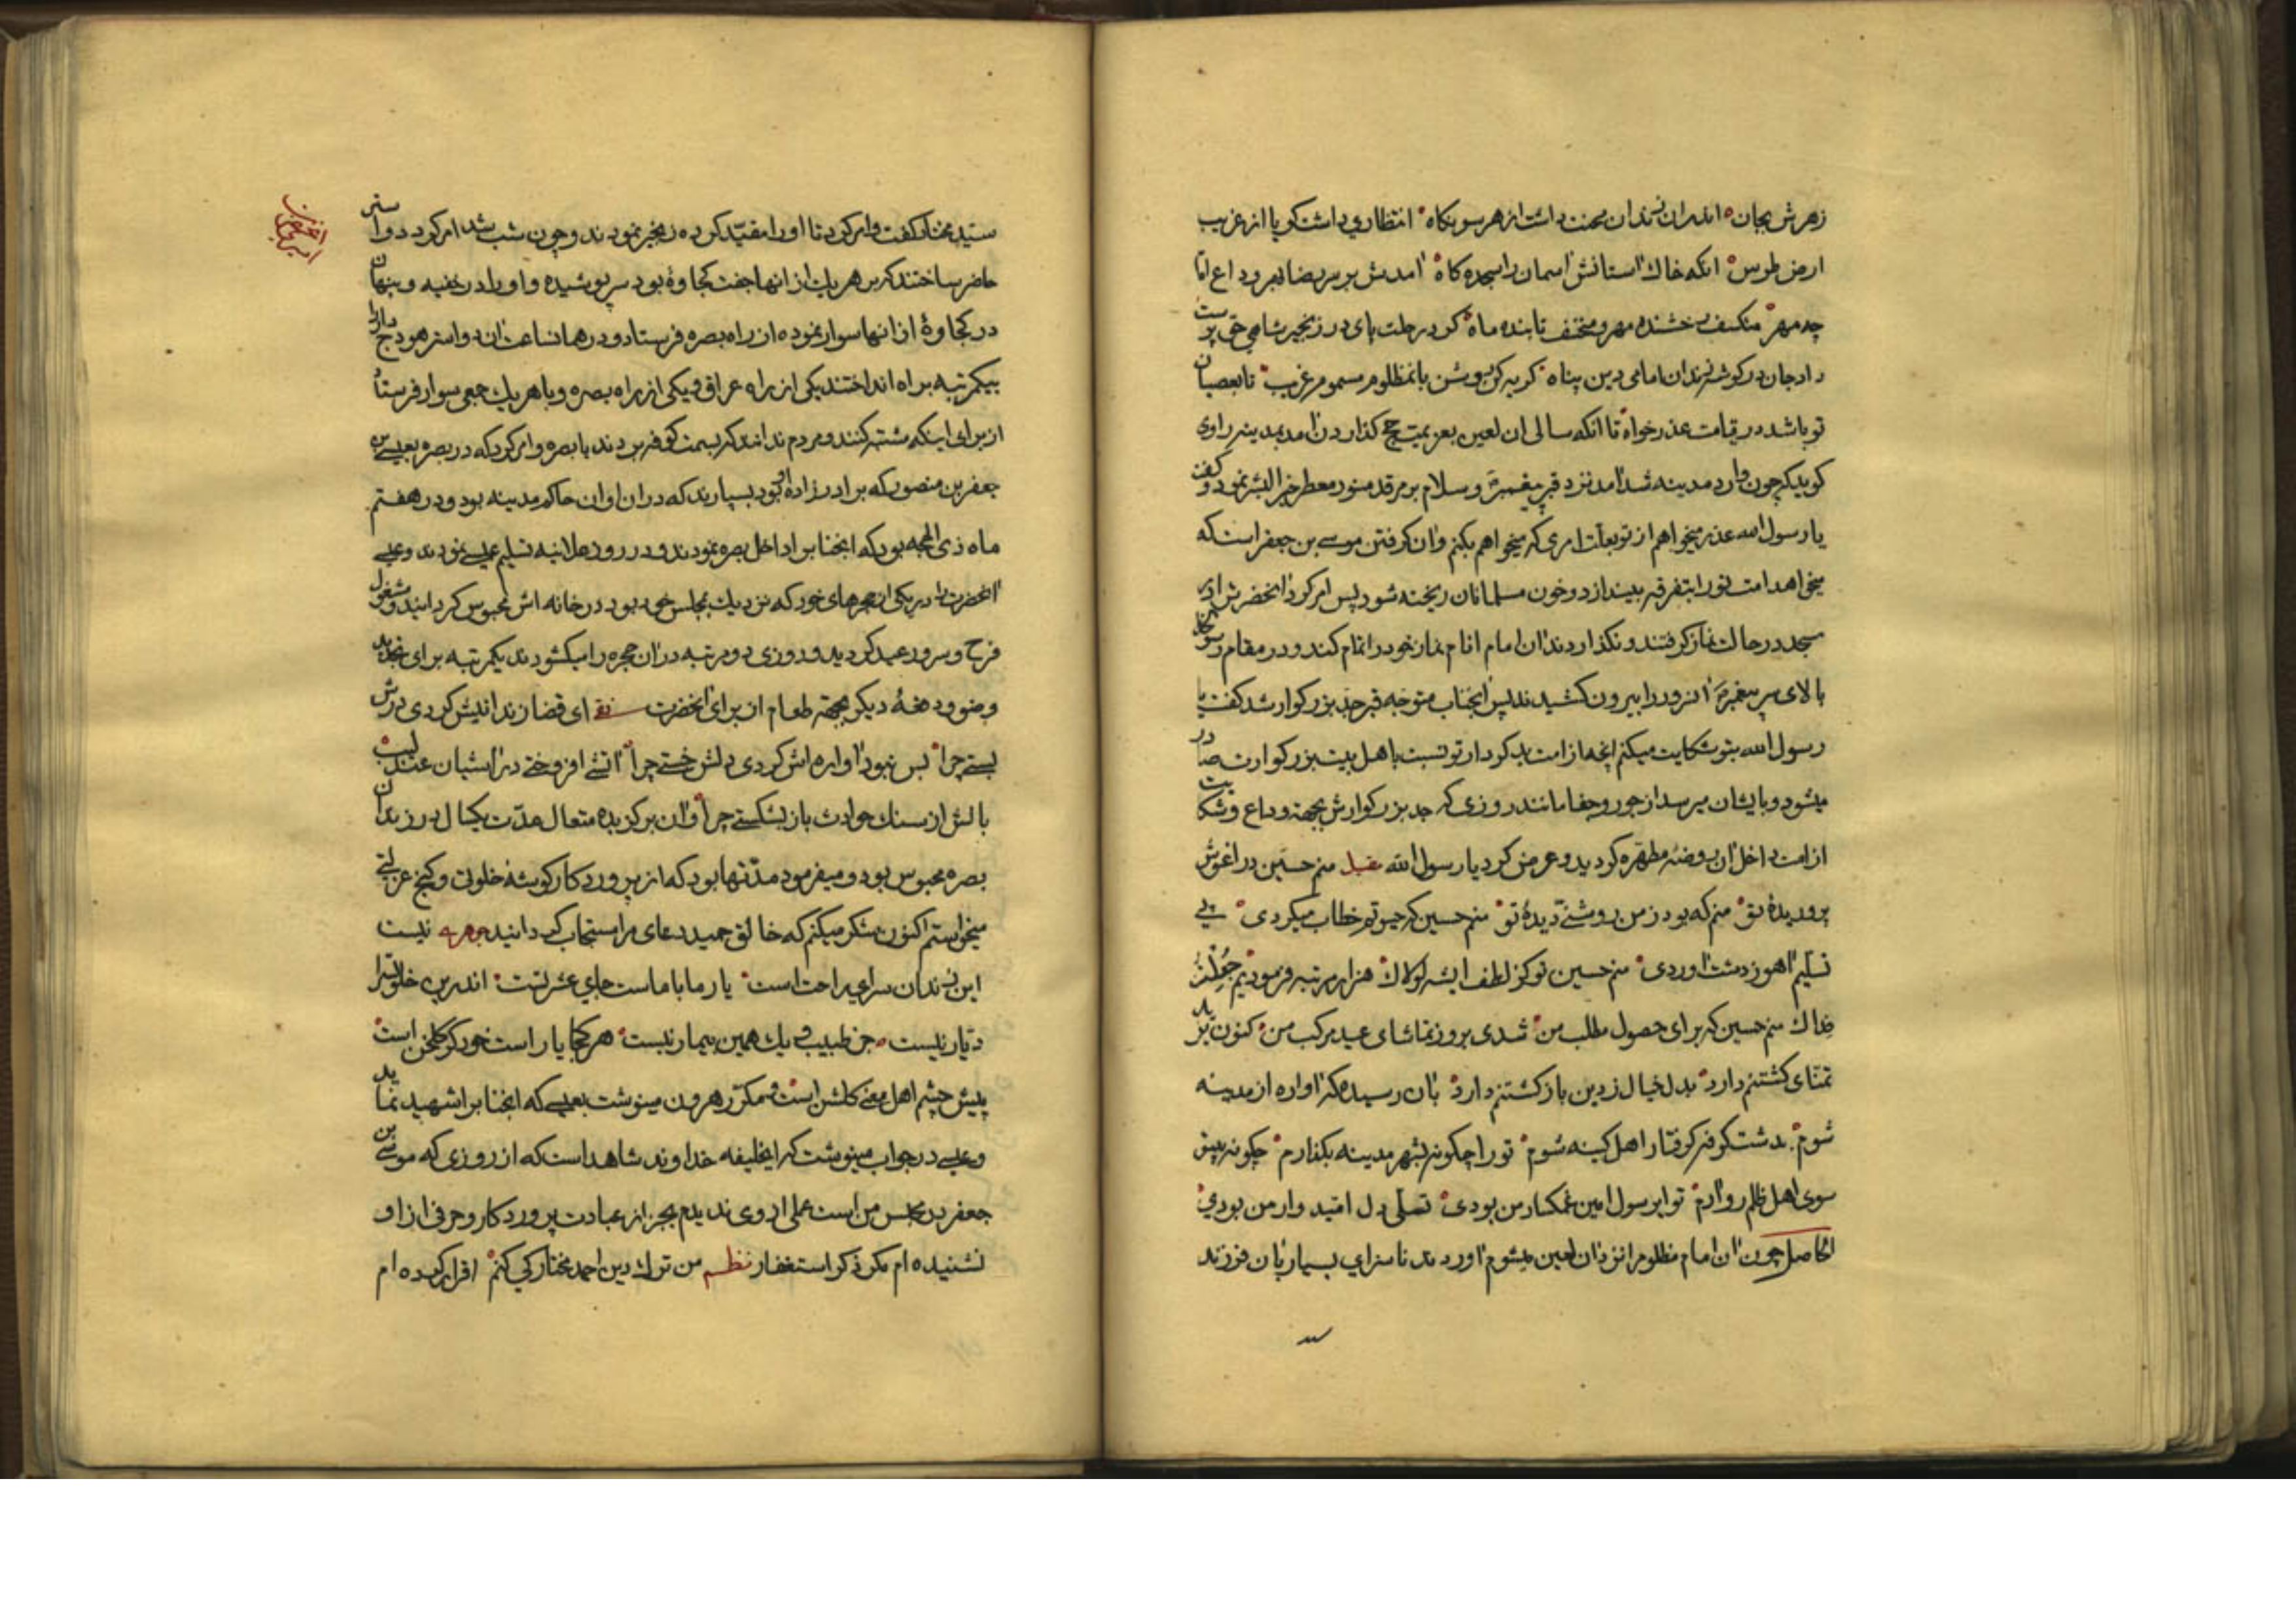 زهرش بجان اندران زندان محنت داشت از هر سو نکاه انتظاری داشت کویا از غریب
ارض طوس انکه خاک استانش اسمان را سجده کاه امدش بر سر رضا بهر وداع اما
چه مهر منکسف رخشنده مهر و منخسف تابنده ماه کرد رحلت پای در زنجیر شاهی حق پرست
داد جان در کوشه زندان امامی دین پناه کریه کن بر وی با نمظلوم مسموم غریب تا بعصیان
تو باشد در قیامت عذر خواه تا انکه سالی ان لعین بعزیمت حج کذاردن امد بمدینه راوی
کوید که چون وارد مدینه شد امد نزد قبر پیغمبر و سلام بر مرقد منور معطر خیر البشر نمود و کفت
یا رسول الله عذر میخواهم از تو بعلت امری که میخواهم بکنم و ان کرفتن موسی بن جعفر است که
میخواهد امت تو را بتفرقه بیندازد و خون مسلمانان ریخته شود پس امر کرد انحضرت را در
مسجد در حالت نماز کرفتند و نکذاردند ان امام انام نماز خود را تمام کند و در مقام
بالای سر پیغمبر انسرور را بیرون کشیدند پس انجناب متوجه قبر جد بزرکوار شد کفت یا
رسول الله بتو شکایت میکنم انچه از امت بد کردار تو نسبت باهل بیت بزرکوارت صادر
میشود و بایشان میرسد از جور و جفا مانند روزی که جد بزرکوارش بجهة وداع و شکایت
از امت داخل ان روضه مطهره کردید و عرض کرد یا رسول الله منم حسین در اغوش
پروریدهٔ تو منم که بود ز من روشنی دیدهٔ تو منم حسین که چو تو خطاب میکردی پی
تسلیم اهو ز دشت اوردی منم حسین تو کز لطف ایشه لولاک هزار مرتبه فرمودیم جعلت
فداک منم حسین که برای حصول مطلب من شدی بروز تماشای عید مرکب من کنون
تمنای کشتنم دارد بدل خیال ز دین باز کشتنم دارد بان رسیده که اواره از مدینه
شوم بدشت کوفه کرفتار اهل کینه شوم تو را چکونه بشهر مدینه بکذارم چکونه پیش
سوی اهل ظلم رو ارم تو ای رسول امین غمکسار من بودی تسلی دل امید وار من بودی
الحاصل چون ان امام مظلوم را نزد ان لعین میشوم اوردند ناسزای بسیار بان فرزند
سید مختار کفت و امر کرد تا او را مقید کرده زنجیر نمودند و چون شب شد امر کرد دو استر
حاضر ساختند که بر هر یک از انها جفت کجاوهٔ بود سر پوشیده و او را در خفیه و پنهان
در کجاوهٔ از انها سوار نموده از راه بصره فرستاد و در همان ساعت ان دو استر هودج دار را
بیکمرتبه براه انداختند یکی از راه عراق و یکی از راه بصره و با هر یک جمعی سوار فرستاد
از برای اینکه مشتبه کنند و مردم ندانند که بسمت کوفه بردند یا بصره و امر کرد که در بصره بعیسی بن
جعفر بن منصور که برادر زاده او بود بسپارند که در ان اوان حاکم مدینه بود و در هفتم
ماه ذی الحجه بود که انجناب را داخل بصره نمودند و در روز علانیه تسلیم عیسی نمودند و عیسی
انحضرت را در یکی از حجرهای خود که نزدیک بمجلس خود بود در خانه اش محبوس کردانید و مشغول
فرح و سرور عید کردید و روزی دو مرتبه در ان حجره را میکشودند یکمرتبه برای تجدید
وضو و دفعهٔ دیکر بجهة طعام از برای انحضرت ای قضا زندانیش کردی درش
بستی چرا بس نبود اواره اش کردی دلش خستی چرا اتشی افروختی در اشیان عندلیب
بالش از سنک حوادث باز بشکستی چرا و ان برکزیده متعال مدت یکسال در زندان
بصره محبوس بود و میفرمود مدتها بود که از پروردکار کوشه خلوت و کنج عزلتی
میخواستم اکنون شکر میکنم که خالق حمید دعای مرا مستجاب کردانید نیست
این زندان سرای راحت است یار ما با ماست جای عشرتست اندرین خلوتسرا
دیار نیست جز طبیب و یک همین بیمار نیست هر کجا یار است خود کر کلخن است
پیش چشم اهل معنی کلشن است و مکرر هرون مینوشت بعیسی که انجناب را شهید نماید
و عیسی در جواب مینوشت که ایخلیفه خداوند شاهد است که از روزی که موسی بن
جعفر در محبس من است عملی از وی ندیدم بجز از عبادت پروردکار و حرفی از او
نشنیده ام مکر ذکر استغفار نظم من ترک دین احمد مختار کی کنم اقرار کرده ام